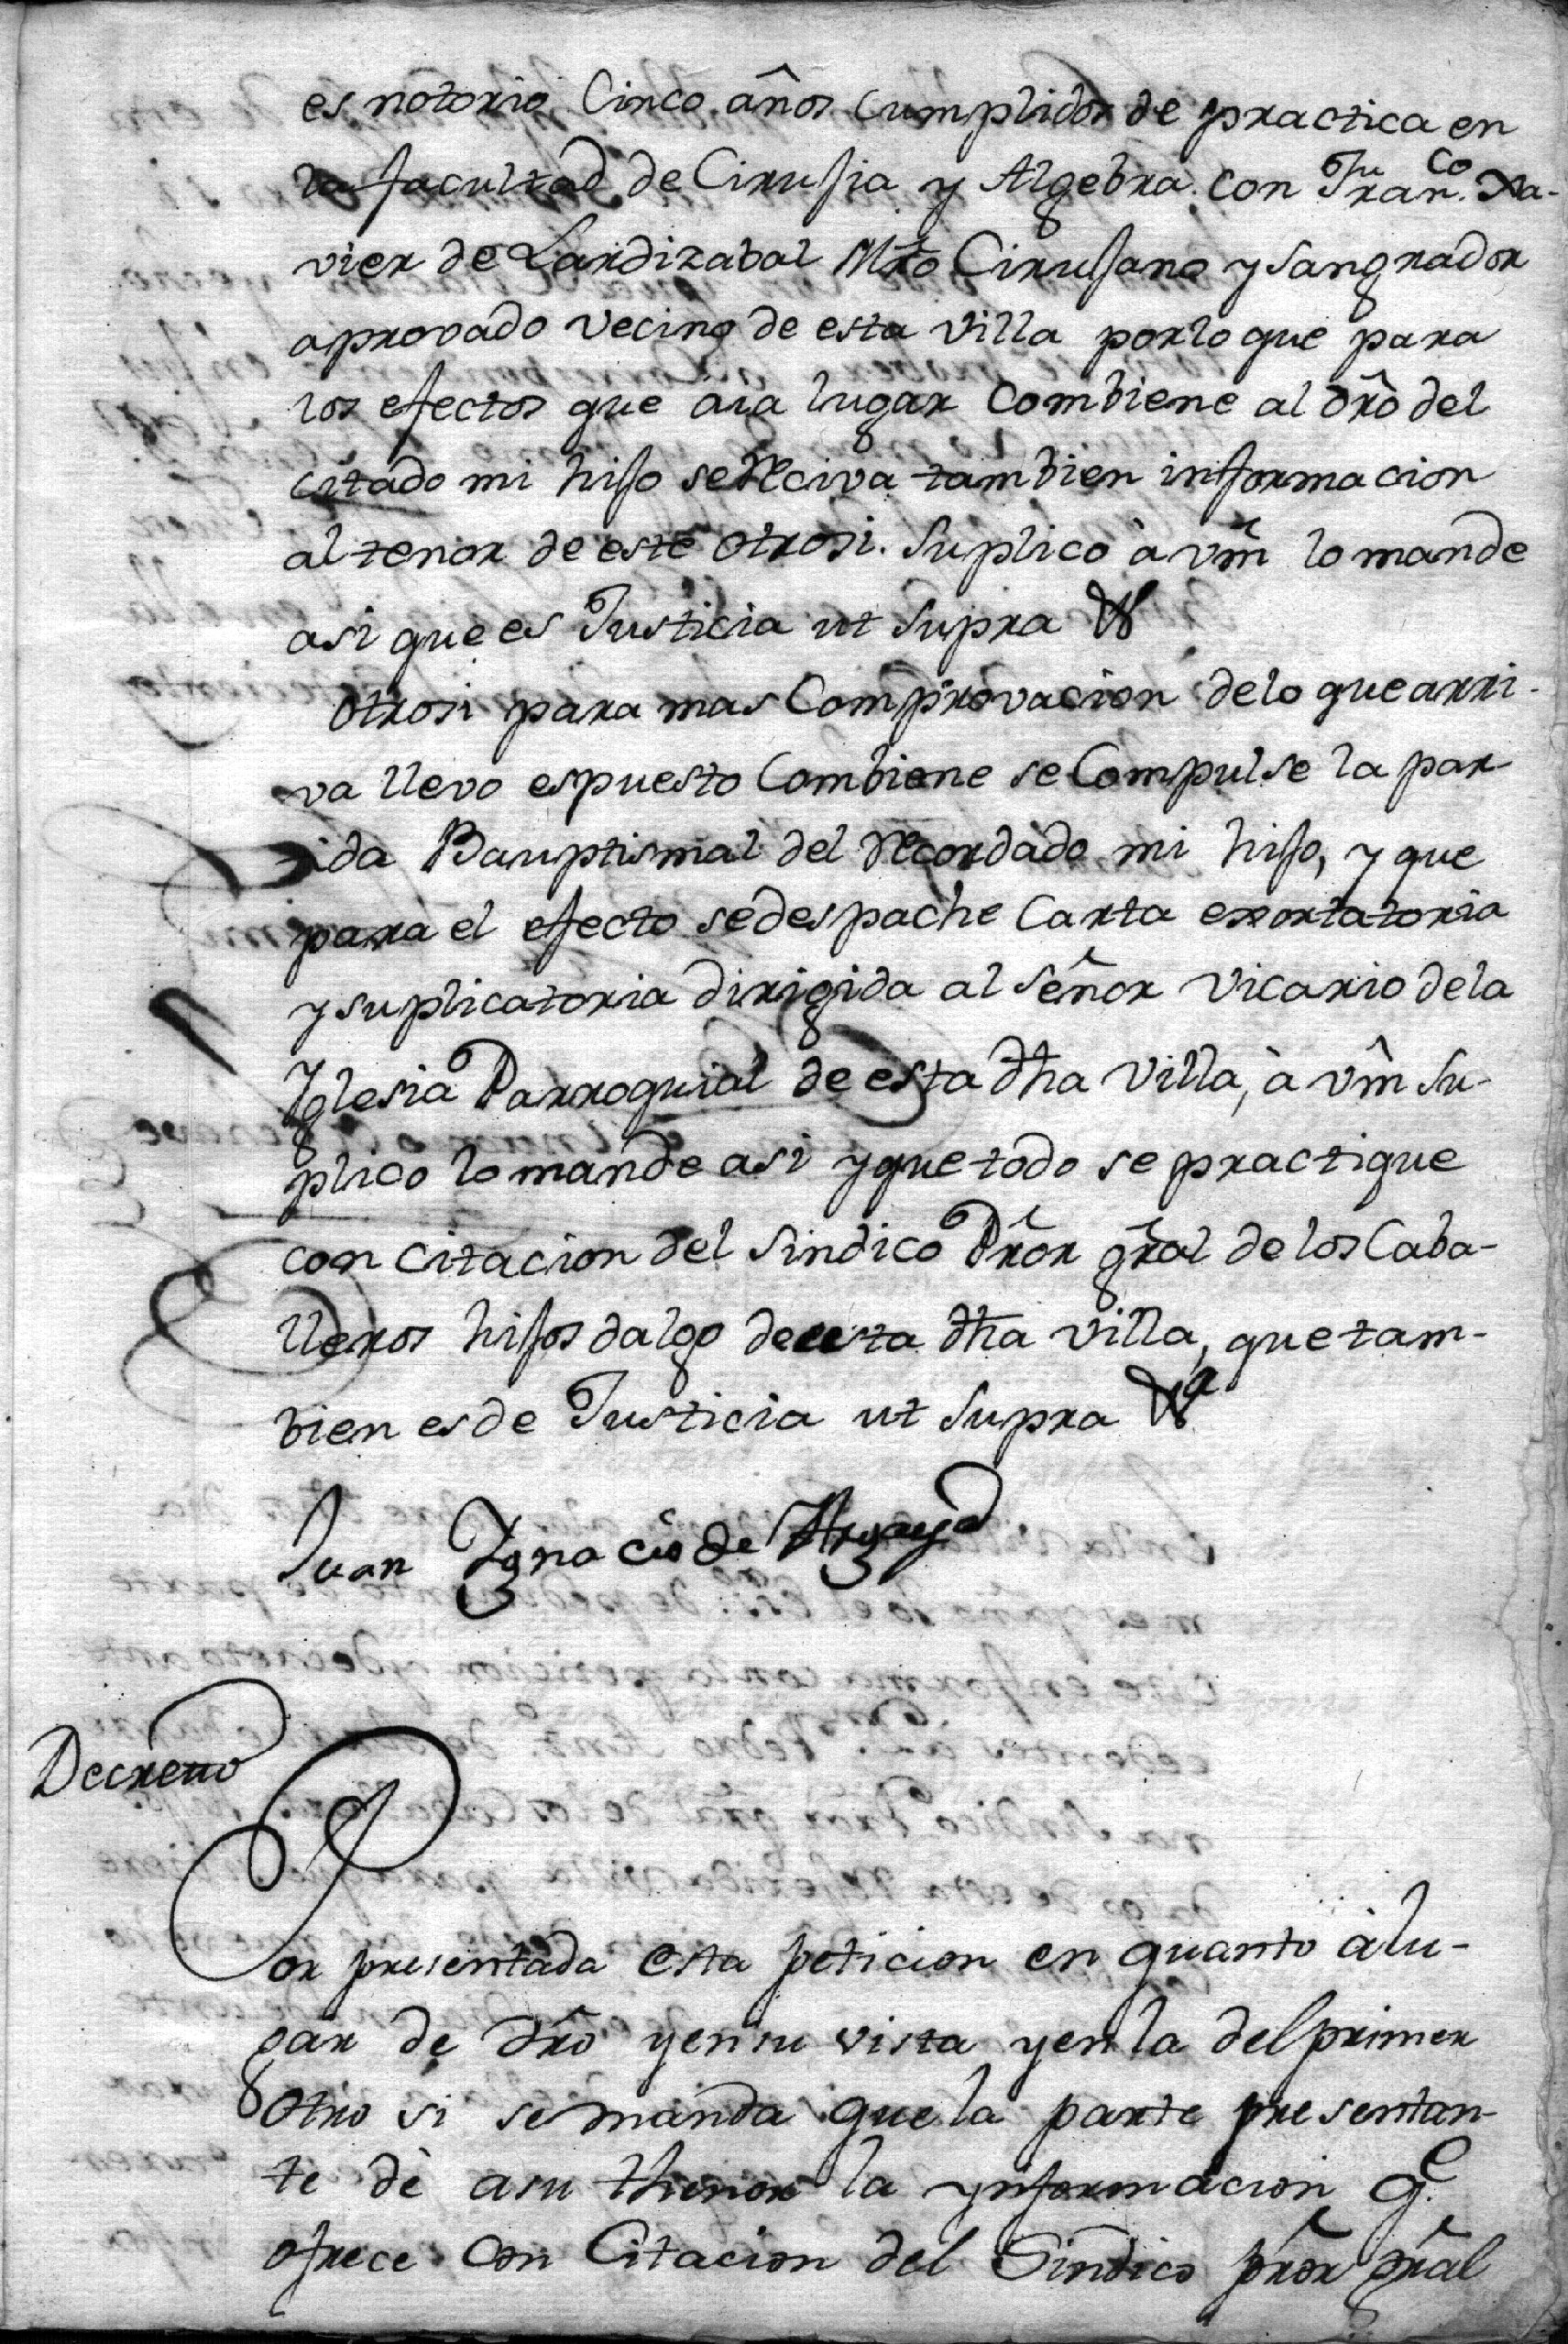 es notorio Cinco años Cumplidos de practica en
la facultad de Cirujia y Algebra. con Franco. Xa-
vier de Lardizabal Mro Cirujano y Sangrador
aprovado vecino de esta Villa por lo que para
los efectos que àia lugar Combiene al dro del
citado mi hijo se Reciva tambien informacion
al tenor de este otrosi. Suplico à vm lo mande
asi que es Justicia ut Supra
Otrosi para mas Comprovacion de lo que arri-
va llevo espuesto Combiene se Compulse la par
ida Bauptismal del Recordado mi hijo, y que
para el efecto se despache Carta exortatoria
y suplicatoria dirigida al Señor Vicario de la
Iglesia Parroquial de esta dha Villa, à vm Su-
plico lo mande asi y que todo se practique
con citacion del Sindico Pror gral de los Caba-
lleros hijos dalgo de esta dha Villa, que tam-
bien es de Justicia ut Supra
Juan Ignacio de
Decretto
Por presentada esta peticion en quanto à lu-
gar de dro y en su vista y en la del primer
Otro si se manda que la parte presentan-
te dè a su thenor la ynformacion qe.
ofrece con Citacion del Sindico pror gral